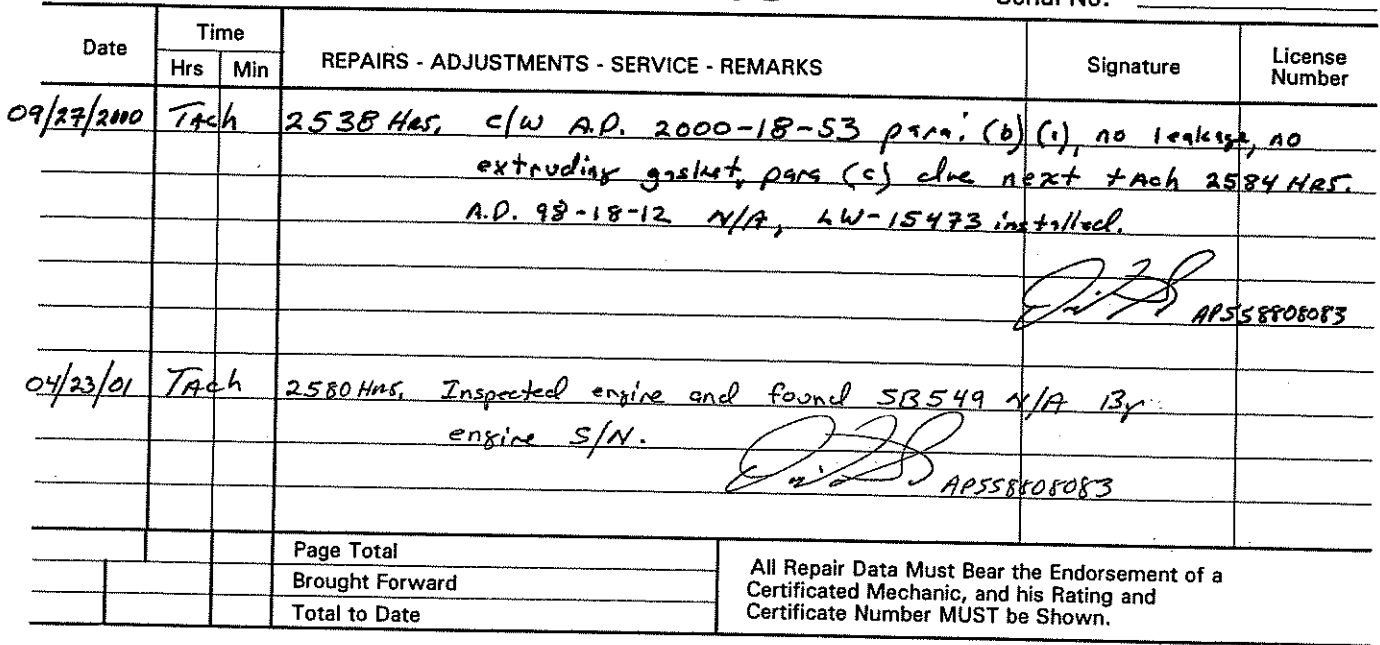 Serial No.
Date Time REPAIRS - ADJUSTMENTS - SERVICE - REMARKS Signature License Number
Hrs Min
09/27/2000 TAch 2538 Hrs. c/w A.D. 2000-18-53 para. (b) (1), no leakage, no
extruding gasket, para (c) due next tAch 2584 HRS.
A.D. 98-18-12 N/A, LW-15473 installed.
AP558808083
04/23/01 TAch 2580 Hrs. Inspected engine and found SB549 N/A By
engine S/N.
AP558808083
Page Total
Brought Forward
Total to Date
All Repair Data Must Bear the Endorsement of a
Certificated Mechanic, and his Rating and
Certificate Number MUST be Shown.